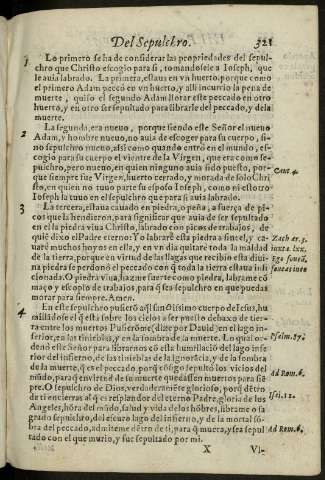 Del Sepulchro. 321
1 Lo primero se ha de considerar las propriedades del sepul-
chro que Christo escogio para si, tomandosele a Ioseph, que
le auia labrado. La primera, estaua en vn huerto, porque como
el primero Adam peccò en vn huerto, y alli incurrio la pena de
muerte, quiso el segundo Adam llorar este peccado en otro
huerto, y en otro ser sepultado para librarle del peccado, y de la
muerte.
2 La segunda, era nueuo, porque siendo este Señor el nueuo
Adam, y hombre nueuo, no auia de escoger para su cuerpo, si-
no sepulchro nueuo, assi como quando entrò en el mundo, es-
cogio para su cuerpo el vientre de la Virgen, que era como se-
pulchro, pero nueuo, en quien ninguno auia sido puesto, por-
que siempre fue Virgen, huerto cerrado, y morada de solo Chri Cant. 4.
sto, en quien no tuuo parte su esposo Ioseph, como ni estotro
Ioseph la tuuo en el sepulchro que para si auia labrado.
3 La tercera, estaua cauado en piedra, o peña, a fuerça de pi-
cos que la hendieron, para significar que auia de ser sepultado
en el la piedra viua Christo, labrado con picos de trabajos, de
quiẽ dixo el Padre eterno: Yo labrarè esta piedra a sincel, y ca- Zach. 3.
uarè muchos hoyos en ella, y en vn dia quitarè toda la maldad iuxta lxx.
de la tierra, porque en virtud de las llagas que recibio esta diui
na piedra se perdonò el peccado con q̃ toda la tierra estaua infi
cionada. O piedra viua, hazme fuerte como piedra, labrame cõ
maço y escoplo de trabajos, para q̃ sea sepulchro en que puedas
morar para siempre. Amen.
4 En este sepulchro pusierõ aq̃l sanctissimo cuerpo de Iesus, hu
millãdose el q̃ està sobre los cielos a ser puesto debaxo de tier-
ra entre los muertos. Pusierõme (dize por Dauid) en el lago in-
ferior, en las tinieblas, y en la sombra de la muerte. Lo qual or- Psalm. 87.
denò este Señor para librarnos cõ esta humillaciõ del lago infe
rior del infierno, de las tinieblas de la ignorãcia, y de la sombra
de la muerte, q̃ es el peccado, porq̃ cõsigo sepultò los vicios del
mũdo, para q̃ en virtud de su muerte quedassen muertos para siẽ Ad Rom. 6.
pre. O sepulchro de Dios, verdaderamẽte glorioso, porq̃ dẽtro
de ti encierras al q̃ es resplandor del eterno Padre, gloria de los Isai. 11.
Angeles, hõra del mũdo, salud y vida de los hõbres, librame o sa
grado sepulchro, del escuro lago del infierno, y de la mortal sõ-
bra del peccado, admiteme dẽtro de ti, para q̃ muera, y sea sepul Ad Rom. 6.
tado con el que murio, y fue sepultado por mi.
X Vl-